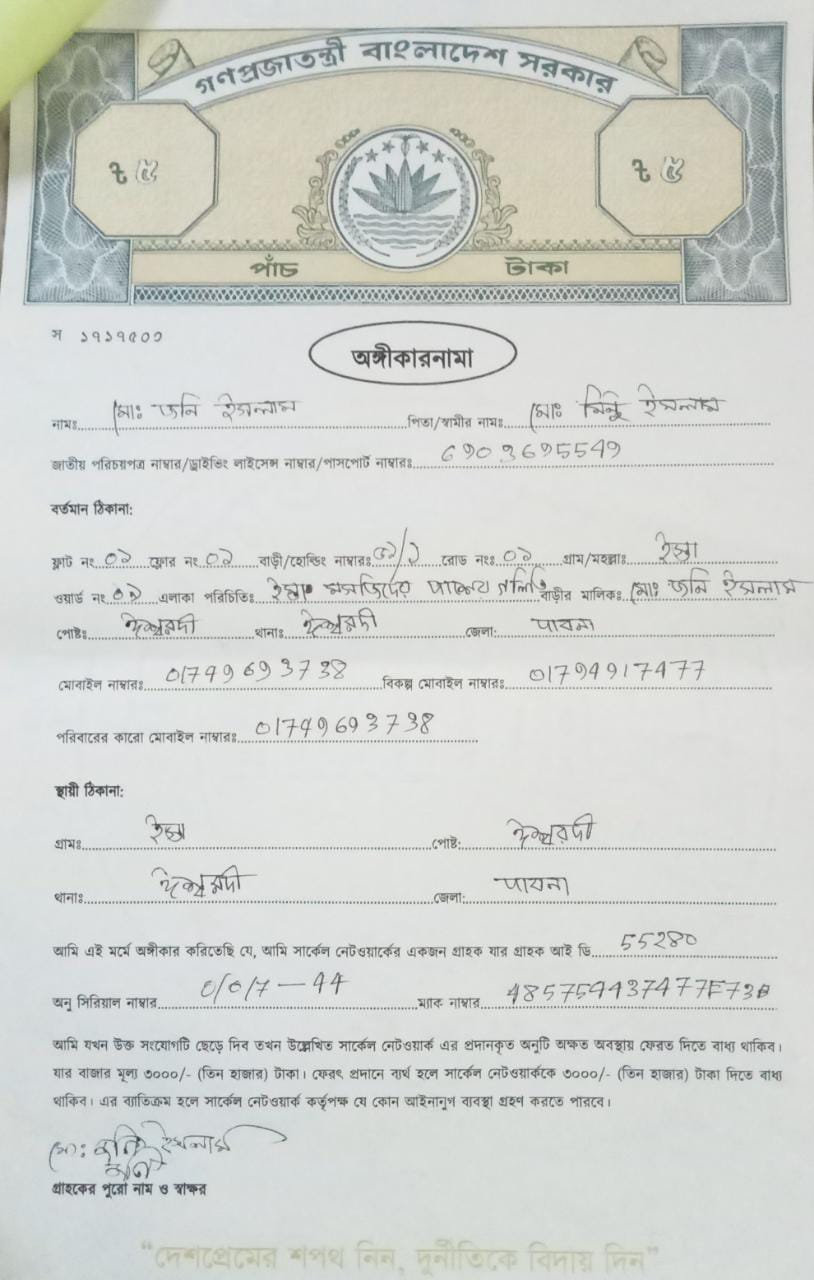 গণপ্রজাতন্ত্রী বাংলাদেশ সরকার
৳ ৫ ৳ ৫
পাঁচ টাকা
স ১৭১৭৫০১
অঙ্গীকারনামা
নামঃ মোঃ জনি ইসলাম পিতা/স্বামীর নামঃ মোঃ মিন্টু ইসলাম
জাতীয় পরিচয়পত্র নাম্বার/ড্রাইভিং লাইসেন্স নাম্বার/পাসপোর্ট নাম্বারঃ 6903695549
বর্তমান ঠিকানা:
ফ্লাট নং ০১ ফ্লোর নং ০১ বাড়ী/হোল্ডিং নাম্বারঃ রোড নংঃ ০১ গ্রাম/মহল্লাঃ
ওয়ার্ড নং ০১ এলাকা পরিচিতিঃ মসজিদের পাশের গলি বাড়ীর মালিকঃ মোঃ জনি ইসলাম
পোষ্টঃ ঈশ্বরদী থানাঃ ঈশ্বরদী জেলা: পাবনা
মোবাইল নাম্বারঃ 01749693738 বিকল্প মোবাইল নাম্বারঃ 01794917477
পরিবারের কারো মোবাইল নাম্বারঃ 01749693738
স্থায়ী ঠিকানা:
গ্রামঃ পোষ্ট: ঈশ্বরদী
থানাঃ ঈশ্বরদী জেলা: পাবনা
আমি এই মর্মে অঙ্গীকার করিতেছি যে, আমি সার্কেল নেটওয়ার্কের একজন গ্রাহক যার গ্রাহক আই ডি 55280
অনু সিরিয়াল নাম্বার 0/0/7 - 44 ম্যাক নাম্বার 485754437477F73B
আমি যখন উক্ত সংযোগটি ছেড়ে দিব তখন উল্লেখিত সার্কেল নেটওয়ার্ক এর প্রদানকৃত অনুটি অক্ষত অবস্থায় ফেরত দিতে বাধ্য থাকিব।
যার বাজার মূল্য ৩০০০/- (তিন হাজার) টাকা। ফেরৎ প্রদানে ব্যর্থ হলে সার্কেল নেটওয়ার্ককে ৩০০০/- (তিন হাজার) টাকা দিতে বাধ্য
থাকিব। এর ব্যতিক্রম হলে সার্কেল নেটওয়ার্ক কর্তৃপক্ষ যে কোন আইনানুগ ব্যবস্থা গ্রহণ করতে পারবে।
মোঃ জনি ইসলাম
জনি
গ্রাহকের পুরো নাম ও স্বাক্ষর
“দেশপ্রেমের শপথ নিন, দুর্নীতিকে বিদায় দিন”